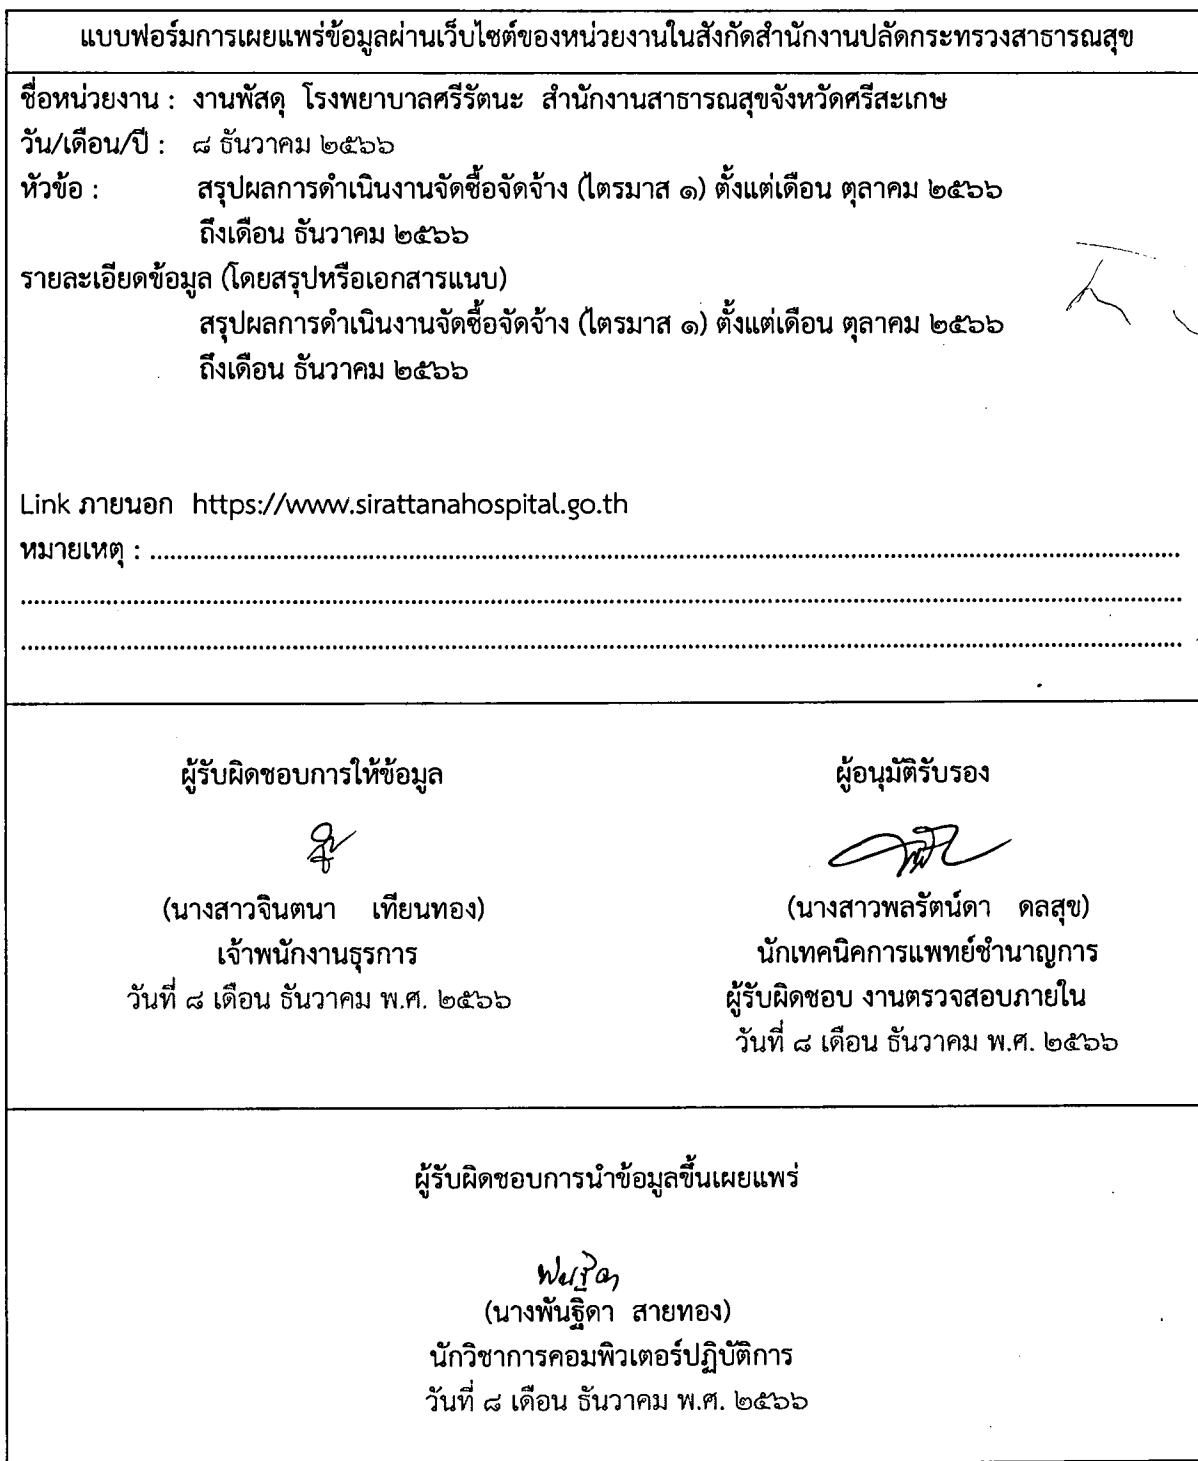 แบบฟอร์มการเผยแพร่ข้อมูลผ่านเว็บไซต์ของหน่วยงานในสังกัดสำนักงานปลัดกระทรวงสาธารณสุข
ชื่อหน่วยงาน : งานพัสดุ โรงพยาบาลศรีรัตนะ สำนักงานสาธารณสุขจังหวัดศรีสะเกษ
วัน/เดือน/ปี : ๘ ธันวาคม ๒๕๖๖
หัวข้อ : สรุปผลการดำเนินงานจัดซื้อจัดจ้าง (ไตรมาส ๑) ตั้งแต่เดือน ตุลาคม ๒๕๖๖
ถึงเดือน ธันวาคม ๒๕๖๖
รายละเอียดข้อมูล (โดยสรุปหรือเอกสารแนบ)
สรุปผลการดำเนินงานจัดซื้อจัดจ้าง (ไตรมาส ๑) ตั้งแต่เดือน ตุลาคม ๒๕๖๖
ถึงเดือน ธันวาคม ๒๕๖๖
Link ภายนอก https://www.sirattanahospital.go.th
หมายเหตุ : ........................................................................
........................................................................
........................................................................
ผู้รับผิดชอบการให้ข้อมูล
(นางสาวจินตนา เทียนทอง)
เจ้าพนักงานธุรการ
วันที่ ๘ เดือน ธันวาคม พ.ศ. ๒๕๖๖
ผู้อนุมัติรับรอง
(นางสาวพลรัตน์ดา ดลสุข)
นักเทคนิคการแพทย์ชำนาญการ
ผู้รับผิดชอบ งานตรวจสอบภายใน
วันที่ ๘ เดือน ธันวาคม พ.ศ. ๒๕๖๖
ผู้รับผิดชอบการนำข้อมูลขึ้นเผยแพร่
(นางพันฐิดา สายทอง)
นักวิชาการคอมพิวเตอร์ปฏิบัติการ
วันที่ ๘ เดือน ธันวาคม พ.ศ. ๒๕๖๖